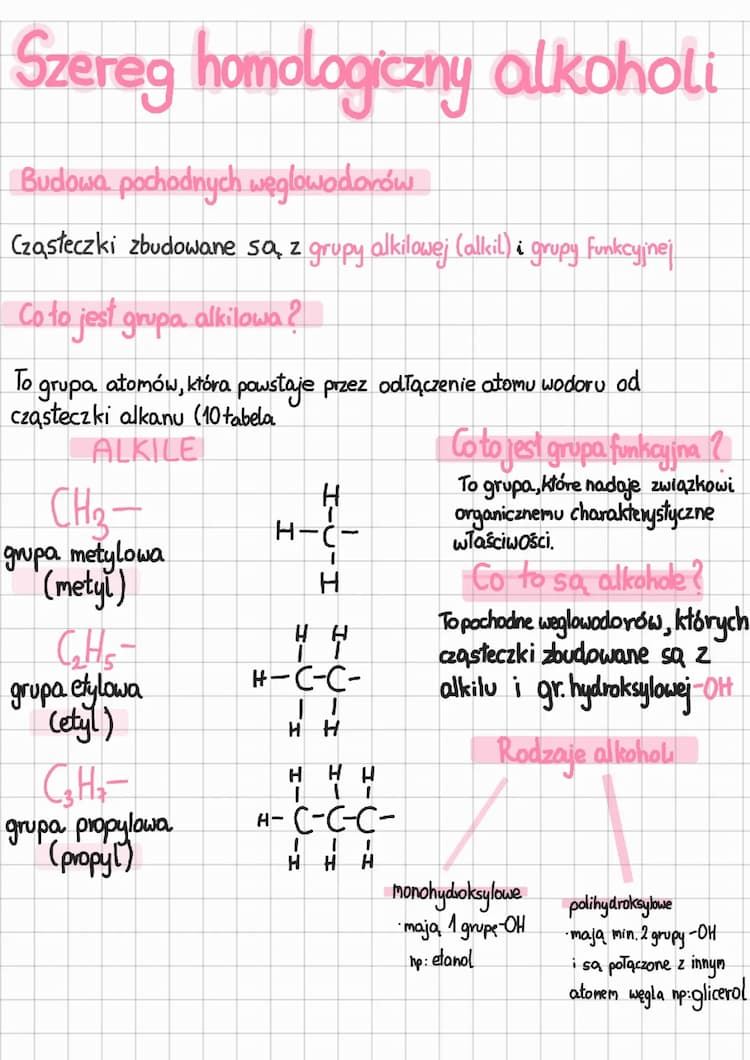 Szereg homologiczny alkoholi
Budowa pochodnych węglowodorów
Cząsteczki zbudowane są z grupy alkilowej (alkil) i grupy funkcyjnej
Co to jest grupa alkilowa?
To grupa atomów, która powstaje przez odłączenie atomu wodoru od
cząsteczki alkanu (10 tabela
ALKILE
CH₃—
grupa metylowa
(metyl)
H
H-C-
H
C₂H₅-
grupa etylowa
(etyl)
H H
H-C-C-
H H
C₃H₇—
grupa propylowa
(propyl)
H H H
H-C-C-C-
H H H
Co to jest grupa funkcyjna?
To grupa, które nadaje związkowi
organicznemu charakterystyczne
właściwości.
Co to są alkohole?
To pochodne węglowodorów, których
cząsteczki zbudowane są z
alkilu i gr. hydroksylowej -OH
Rodzaje alkoholi
monohydroksylowe
·mają 1 grupę-OH
np: etanol
polihydroksylowe
·mają min. 2 grupy -OH
i są połączone z innym
atomem węgla np: glicerol